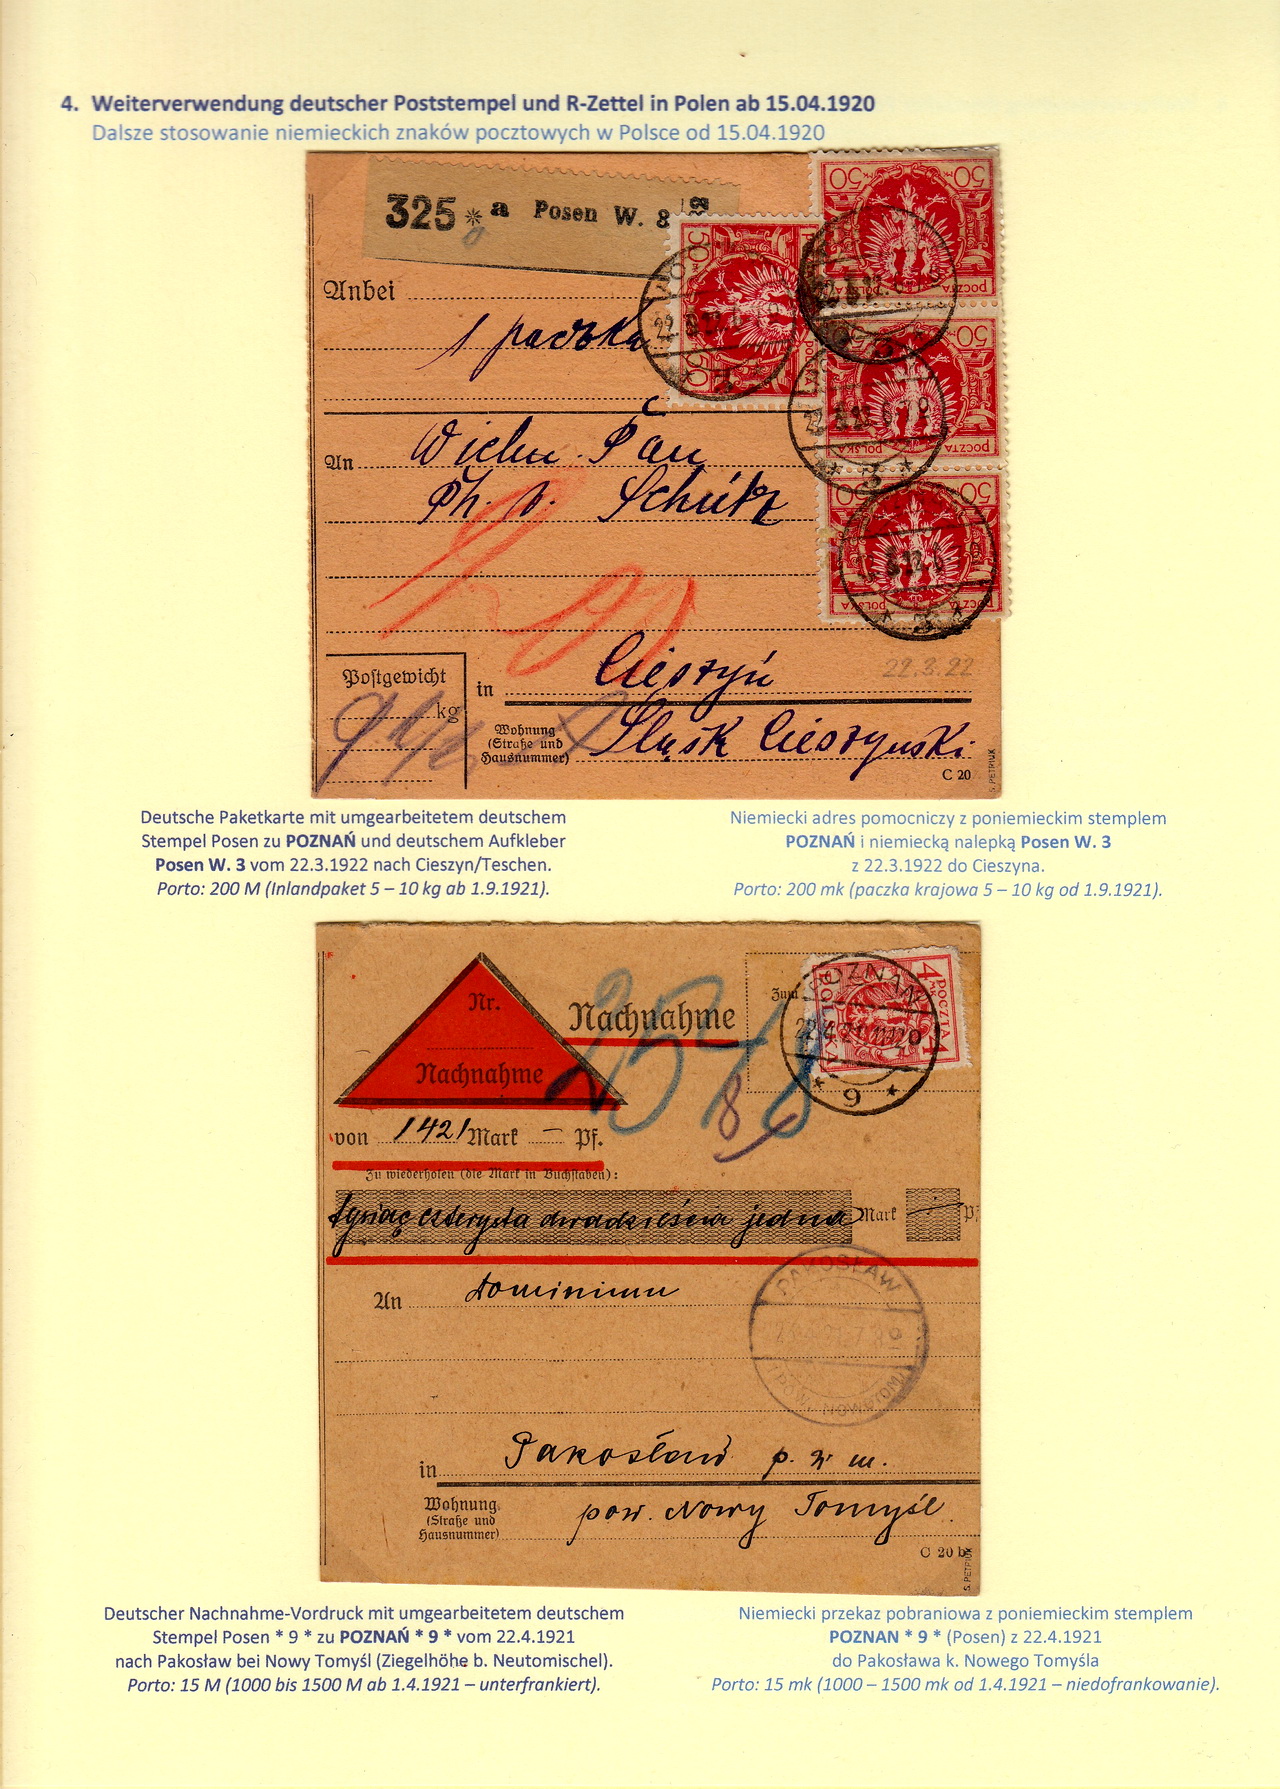 4. Weiterverwendung deutscher Poststempel und R-Zettel in Polen ab 15.04.1920
Dalsze stosowanie niemieckich znaków pocztowych w Polsce od 15.04.1920
325 * a Posen W. 8
50 50
POCZTA POLSKA
50
50
POCZTA POLSKA
50 50
POCZTA POLSKA
Anbei
1 paczka
3
An Wielm. Pan
Ph. v. Schütz
200
22.3.22
Postgewicht
kg
in Cieszyń
Wohnung
(Straße und
Hausnummer)
Śląsk Cieszyński
C 20
S. PETRIUK
Deutsche Paketkarte mit umgearbeitetem deutschem
Stempel Posen zu POZNAŃ und deutschem Aufkleber
Posen W. 3 vom 22.3.1922 nach Cieszyn/Teschen.
Porto: 200 M (Inlandpaket 5 – 10 kg ab 1.9.1921).
Niemiecki adres pomocniczy z poniemieckim stemplem
POZNAŃ i niemiecką nalepką Posen W. 3
z 22.3.1922 do Cieszyna.
Porto: 200 mk (paczka krajowa 5 – 10 kg od 1.9.1921).
Nr.
Nachnahme
Nachnahme
Zum
4 POCZTA 4
POLSKA
POZNAŃ
22.4.21.
* 9 *
von 1421 Mark — Pf.
Zu wiederholen (die Mark in Buchstaben):
tysiąc czterysta dwadzieścia jedna Mark — Pf
An Dominium
PAKOSŁAW
(POW. NOWOTOM.)
in Pakosław p. w m.
Wohnung
(Straße und
Hausnummer)
pow. Nowy Tomyśl.
C 20 b
S. PETRIUK
Deutscher Nachnahme-Vordruck mit umgearbeitetem deutschem
Stempel Posen * 9 * zu POZNAŃ * 9 * vom 22.4.1921
nach Pakosław bei Nowy Tomyśl (Ziegelhöhe b. Neutomischel).
Porto: 15 M (1000 bis 1500 M ab 1.4.1921 – unterfrankiert).
Niemiecki przekaz pobraniowa z poniemieckim stemplem
POZNAN * 9 * (Posen) z 22.4.1921
do Pakosława k. Nowego Tomyśla
Porto: 15 mk (1000 – 1500 mk od 1.4.1921 – niedofrankowanie).